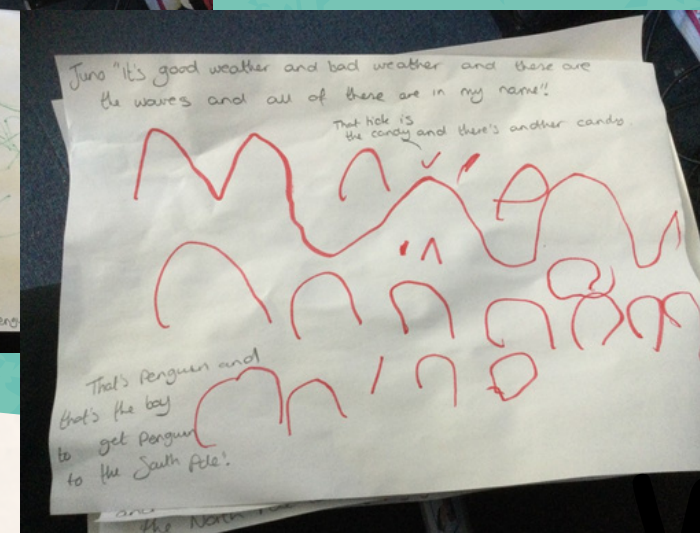 Juno "It's good weather and bad weather and these are
the waves and all of these are in my name"!
That tick is
the candy and there's another candy.
That's Penguin and
that's the boy
to get Penguin
to the South Pole!
and
the North